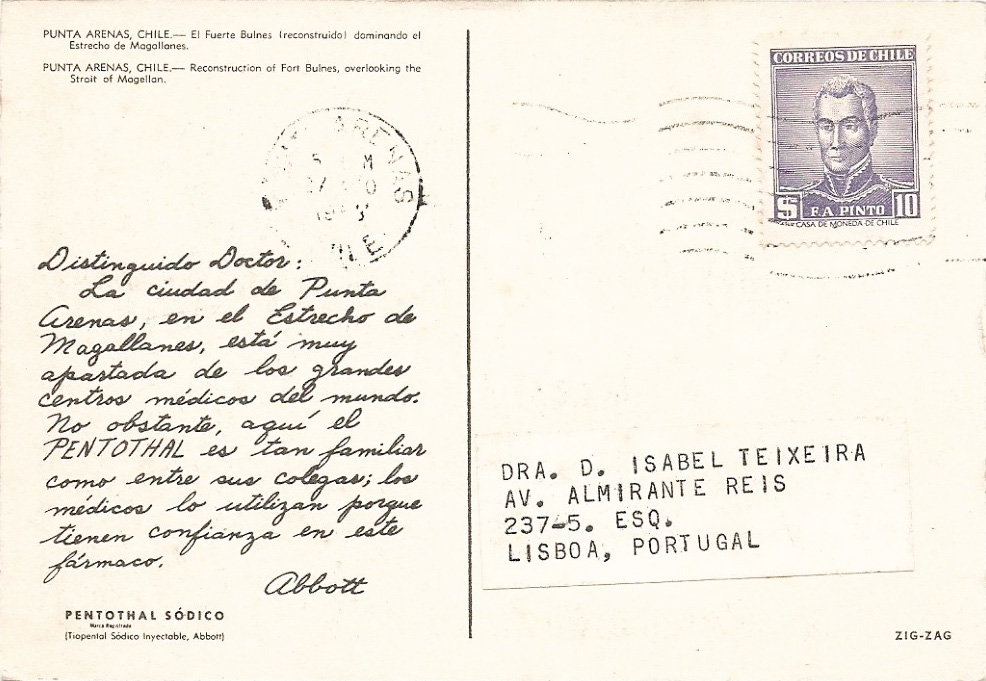 PUNTA ARENAS, CHILE.— El Fuerte Bulnes (reconstruido) dominando el
Estrecho de Magallanes.
PUNTA ARENAS, CHILE.— Reconstruction of Fort Bulnes, overlooking the
Strait of Magellan.
ARENAS
CORREOS DE CHILE
$ F. A. PINTO 10
CASA DE MONEDA DE CHILE
Distinguido Doctor:
La ciudad de Punta
Arenas, en el Estrecho de
Magallanes, está muy
apartada de los grandes
centros médicos del mundo.
No obstante, aquí el
PENTOTHAL es tan familiar
como entre sus colegas; los
médicos lo utilizan porque
tienen confianza en este
fármaco.
Abbott
PENTOTHAL SÓDICO
Marca Registrada
(Tiopental Sódico Inyectable, Abbott)
DRA. D. ISABEL TEIXEIRA
AV. ALMIRANTE REIS
237-5. ESQ.
LISBOA, PORTUGAL
ZIG-ZAG